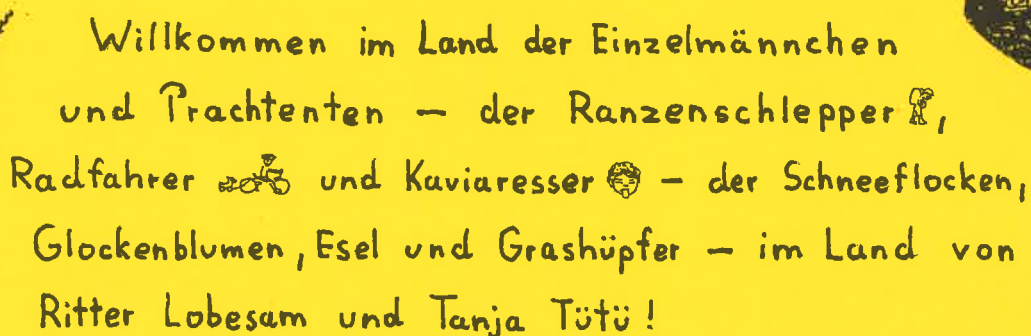 Willkommen im Land der Einzelmännchen
und Prachtenten – der Ranzenschlepper,
Radfahrer und Kaviaresser – der Schneeflocken,
Glockenblumen, Esel und Grashüpfer – im Land von
Ritter Lobesam und Tanja Tütü!